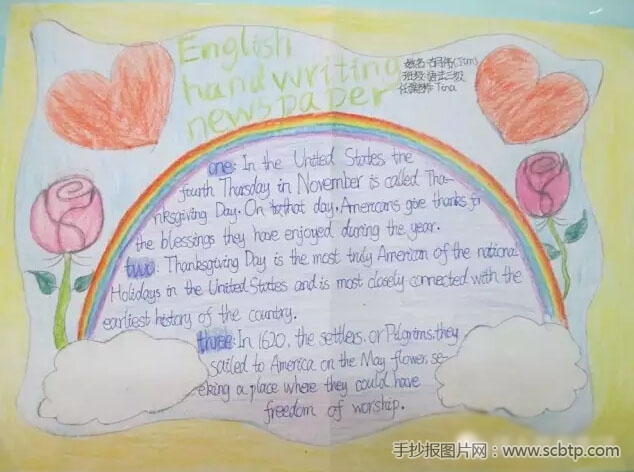 English
handwriting
newspaper
姓名: (Tom)
班级:语法二级
任课教师:Tina
one: In the United States the
fourth Thursday in November is called Tha-
nksgiving Day. On that day, Americans give thanks for
the blessings they have enjoyed during the year.
two: Thanksgiving Day is the most truly American of the national
Holidays in the United States and is most closely connected with the
earliest history of the country.
three: In 1620, the settlers, or Pilgrims, they
sailed to America on the May flower, se-
eking a place where they could have
freedom of worship.
手抄报图片网:www.scbtp.com